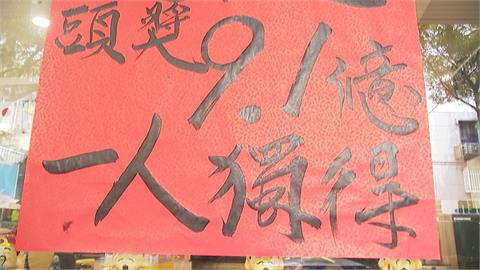 頭獎9.1億
一人獨得